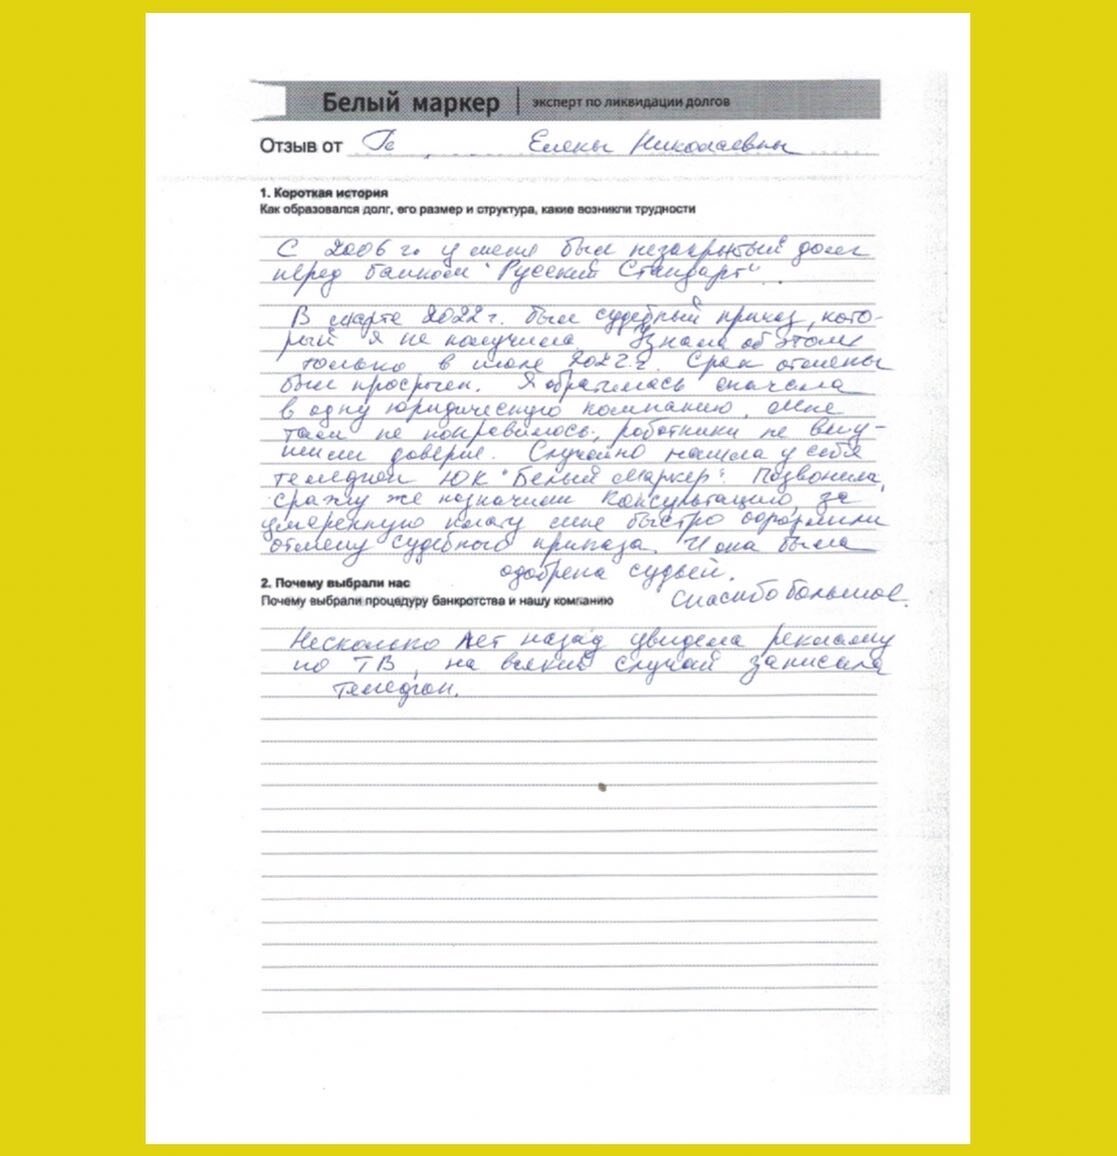 Белый маркер | эксперт по ликвидации долгов
Отзыв от Ге Елены Николаевны
1. Короткая история
Как образовался долг, его размер и структура, какие возникли трудности
С 2006 г. у меня был незакрытый долг
перед банком "Русский Стандарт".
В марте 2022 г. был судебный приказ, кото-
рый я не получила. Узнала об этом
только в июле 2022 г. Срок отмены
был просрочен. Я обратилась сначала
в одну юридическую компанию, мне
там не понравилось, работники не вну-
шили доверие. Случайно нашла у себя
телефон ЮК "Белый маркер". Позвонила,
сразу же назначили консультацию, за
умеренную плату мне быстро оформили
отмену судебного приказа. И она была
одобрена судьёй.
Спасибо большое.
2. Почему выбрали нас
Почему выбрали процедуру банкротства и нашу компанию
Несколько лет назад увидела рекламу
по ТВ, на всякий случай записала
телефон.